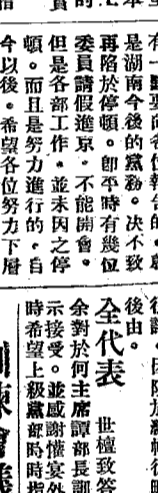 是湖南今後的黨務。决不致
再陷於停頓。卽平時有幾位
委員請假進京。不能開會。
但是各部工作。並未因之停
頓。而且是努力進行的。自
今以後。希望各位努力下層
後由。
全代表
世檀致答
余對於何主席譚部長訓
示接受。並感謝懽宴外
時希望上級黨部時時指